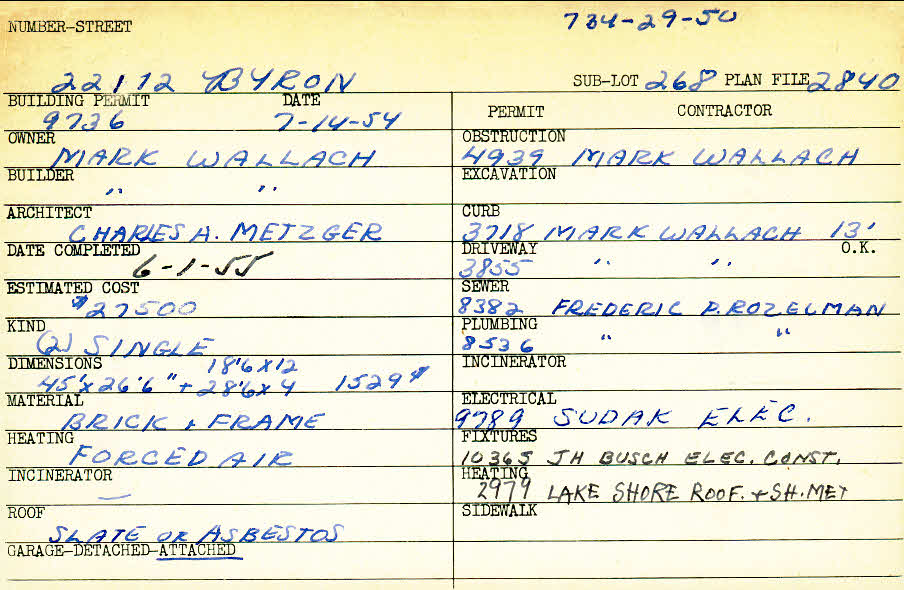 734-29-50
NUMBER-STREET
22112 BYRON SUB-LOT 268 PLAN FILE 2840
BUILDING PERMIT DATE
9736 7-14-54
OWNER
MARK WALLACH
BUILDER
" "
ARCHITECT
CHARLES H. METZGER
DATE COMPLETED
6-1-55
ESTIMATED COST
$27500
KIND
(2) SINGLE
DIMENSIONS 18'6 X 12
45' X 26'6" + 28'6 X 4 1529
MATERIAL
BRICK + FRAME
HEATING
FORCED AIR
INCINERATOR
—
ROOF
SLATE OR ASBESTOS
GARAGE-DETACHED-ATTACHED
PERMIT CONTRACTOR
OBSTRUCTION
4939 MARK WALLACH
EXCAVATION
CURB
3718 MARK WALLACH 13'
DRIVEWAY O.K.
3855 " "
SEWER
8382 FREDERIC P. ROZELMAN
PLUMBING
8536 " "
INCINERATOR
ELECTRICAL
9789 SUDAK ELEC.
FIXTURES
10365 JH BUSCH ELEC. CONST.
HEATING
2979 LAKE SHORE ROOF. + SH. MET
SIDEWALK